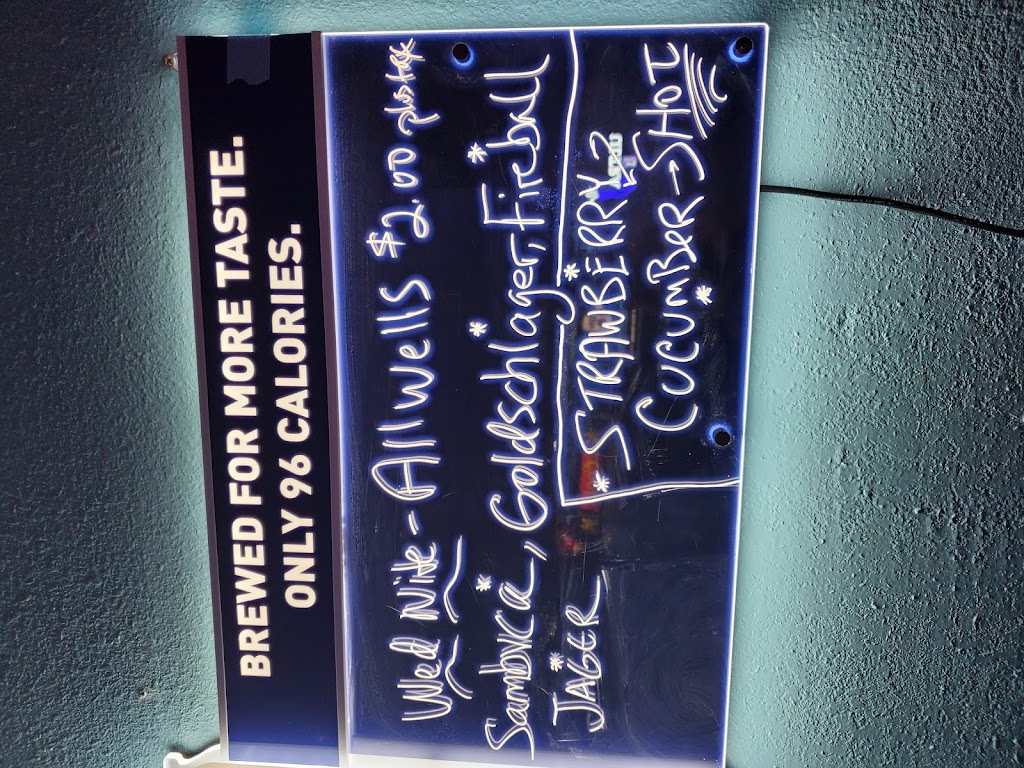 BREWED FOR MORE TASTE.
ONLY 96 CALORIES.
Wed Nite - All Wells $2.00 plus tax
Sambuca, Goldschlager, Fireball
JAGER
STRAWBERRY
CUCUMBER → SHOT